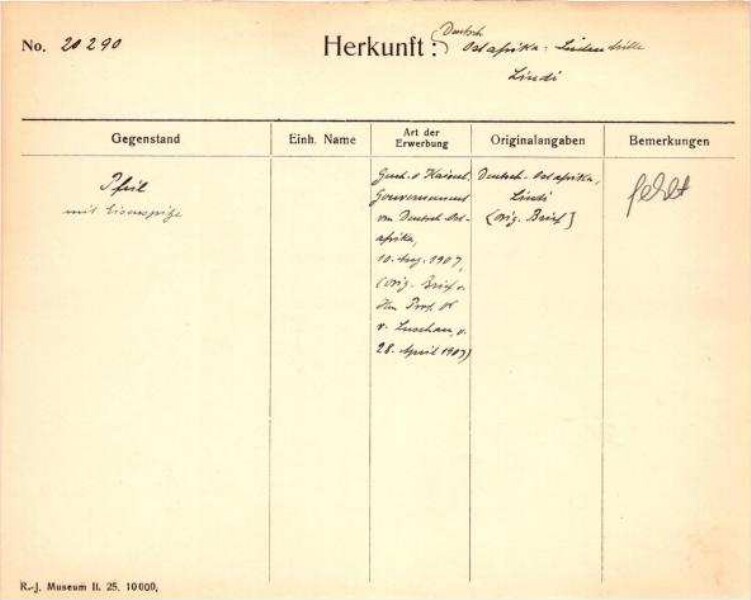 No. 20290
Herkunft: Deutsch
Ostafrika
Lindi
Gegenstand
Einh. Name
Art der
Erwerbung
Originalangaben
Bemerkungen
Pfeil
mit Eisenspitze
Gesch. d. Kaiserl.
Gouvernement
von Deutsch Ost-
afrika,
10. Aug. 1907,
(orig. Brief v.
Hrn Prof. Dr
v. Luschan, v.
28. April 1907)
Deutsch-Ostafrika,
Lindi
(orig. Brief)
fehlt
R.-J. Museum II. 25. 10000,